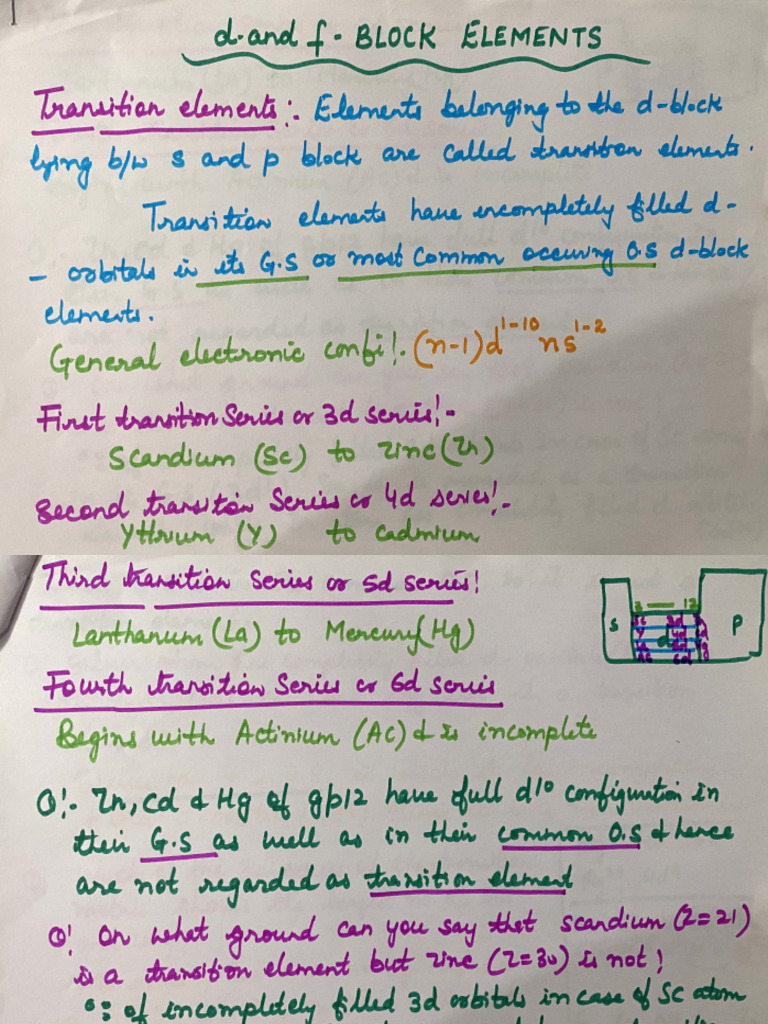 d-and f-BLOCK ELEMENTS
Transition elements:- Elements belonging to the d-block
lying b/w s and p block are called transition elements.
Transition elements have incompletely filled d-
- orbitals in its G.S or most common occuring O.S d-block
elements.
General electronic confi!. (n-1)d¹⁻¹⁰ ns¹⁻²
First transition Series or 3d series!-
Scandium (Sc) to Zinc (Zn)
Second transition Series or 4d series!-
Yttrium (Y) to Cadmium
Third transition Series or 5d series!
Lanthanum (La) to Mercury (Hg)
Fourth transition Series or 6d series
Begins with Actinium (Ac) & is incomplete
s
3 — 12
Sc 3d
Y 4d
d 5d
Ac 6d
p
Q!- Zn, Cd & Hg of gp12 have full d10 configuration in
their G.S as well as in their common O.S & hence
are not regarded as transition element
Q! On what ground can you say that scandium (Z=21)
is a transition element but zinc (Z=30) is not!
of incompletely filled 3d orbitals in case of Sc atom